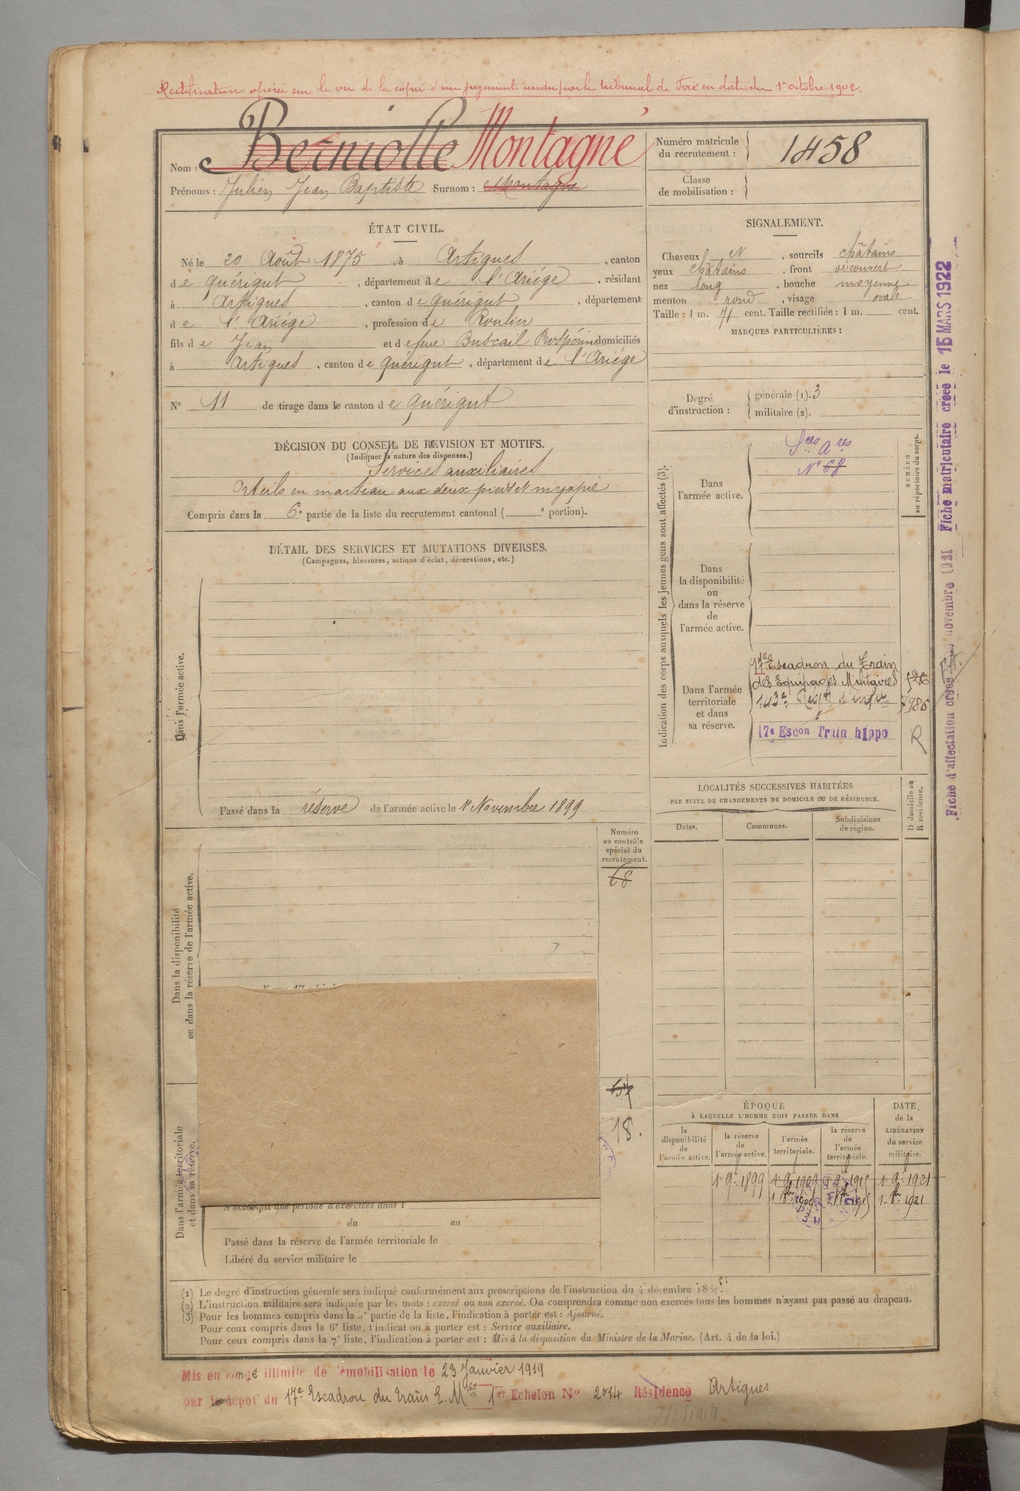 Rectification opérée sur le vu de la copie d'un jugement rendu par le tribunal de Foix en date du 1er octobre 1902.
Nom : Berniolle Montagné
Prénoms : Julien Jean Baptiste Surnom : Montagné
Numéro matricule du recrutement : 1458
Classe de mobilisation :
ÉTAT CIVIL.
Né le 20 Août 1875, à Artigues, canton
de Quérigut, département de l'Ariége, résidant
à Artigues, canton de Quérigut, département
de l'Ariége, profession de Roulier
fils de Jean et de feue Buscail Prospérine domiciliés
à Artigues, canton de Quérigut, département de l'Ariége
N° 11 de tirage dans le canton de Quérigut
DÉCISION DU CONSEIL DE RÉVISION ET MOTIFS.
(Indiquer la nature des dispenses.)
Services auxiliaires
Orteils en marteau aux deux pieds et myopie
Compris dans la 6e partie de la liste du recrutement cantonal ( e portion).
SIGNALEMENT.
Cheveux N, sourcils châtains
yeux châtains, front découvert
nez long, bouche moyenne
menton rond, visage ovale
Taille : 1 m. 71 cent. Taille rectifiée : 1 m. cent.
MARQUES PARTICULIÈRES :
Degré d'instruction : générale (1). 3
militaire (2).
DÉTAIL DES SERVICES ET MUTATIONS DIVERSES.
(Campagnes, blessures, actions d'éclat, décorations, etc.)
Dans l'armée active.
Passé dans la réserve de l'armée active le 1er Novembre 1899
Indication des corps auxquels les jeunes gens sont affectés (3).
NUMÉRO au répertoire du corps.
Dans l'armée active.
Sces Ares
N° 68
Dans la disponibilité ou dans la réserve de l'armée active.
Dans l'armée territoriale et dans sa réserve.
17e Escadron du Train
des Equipages Militaires
143e Régt d'Infie
17e Escon Train hippo
R
LOCALITÉS SUCCESSIVES HABITÉES
PAR SUITE DE CHANGEMENTS DE DOMICILE OU DE RÉSIDENCE.
Dates. Communes. Subdivisions de région. D domicile ou R résidence.
Dans la disponibilité ou dans la réserve de l'armée active.
Numéro au contrôle spécial du recrutement.
68
18.
Dans l'armée territoriale et dans sa réserve.
A accompli une période d'exercices dans l
du au
Passé dans la réserve de l'armée territoriale le
Libéré du service militaire le
ÉPOQUE
À LAQUELLE L'HOMME DOIT PASSER DANS
la disponibilité de l'armée active. la réserve de l'armée active. l'armée territoriale. la réserve de l'armée territoriale.
DATE de la LIBÉRATION du service militaire.
1 9e 1899
(1) Le degré d'instruction générale sera indiqué conformément aux prescriptions de l'instruction du 4 décembre
(2) L'instruction militaire sera indiquée par les mots : exercé ou non exercé. On comprendra comme non exercés tous les hommes n'ayant pas passé au drapeau.
(3) Pour les hommes compris dans la 5e partie de la liste, l'indication à porter est : Ajourné.
Pour ceux compris dans la 6e liste, l'indication à porter est : Service auxiliaire.
Pour ceux compris dans la 7e liste, l'indication à porter est : Mis à la disposition du Ministre de la Marine. (Art. 4 de la loi.)
Mis en congé illimité de démobilisation le 23 Janvier 1919
par le dépôt du 17e Escadron du train E. Mres 1er Echelon N° 2014 Résidence Artigues
Fiche d'affectation créée novembre 1921 Fiche matriculaire créée le 15 MARS 1922